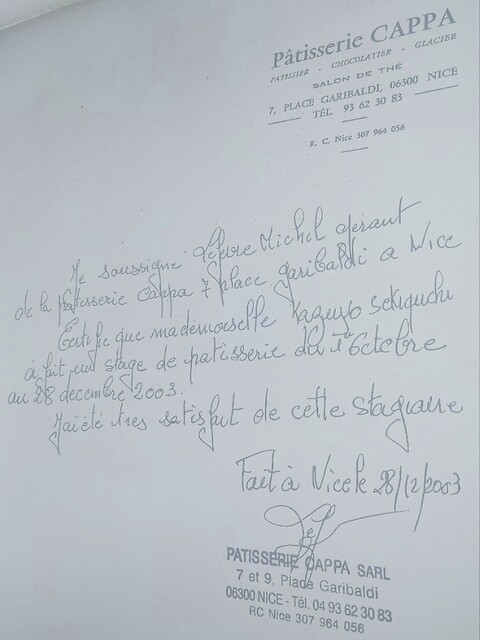 Pâtisserie CAPPA
PATISSIER - CHOCOLATIER - GLACIER
SALON DE THÉ
7, PLACE GARIBALDI, 06300 NICE
TÉL. 93 62 30 83
R. C. Nice 307 964 056
Je soussigne Lefevre Michel gerant
de la patisserie Cappa 7 place garibaldi a Nice
Certifie que mademoiselle Kazuyo Sekiguchi
à fait un stage de patisserie du 1er Octobre
au 28 decembre 2003.
J'ai été tres satisfait de cette stagiaire
Fait à Nice le 28/12/2003
PATISSERIE CAPPA SARL
7 et 9, Place Garibaldi
06300 NICE - Tél. 04 93 62 30 83
RC Nice 307 964 056